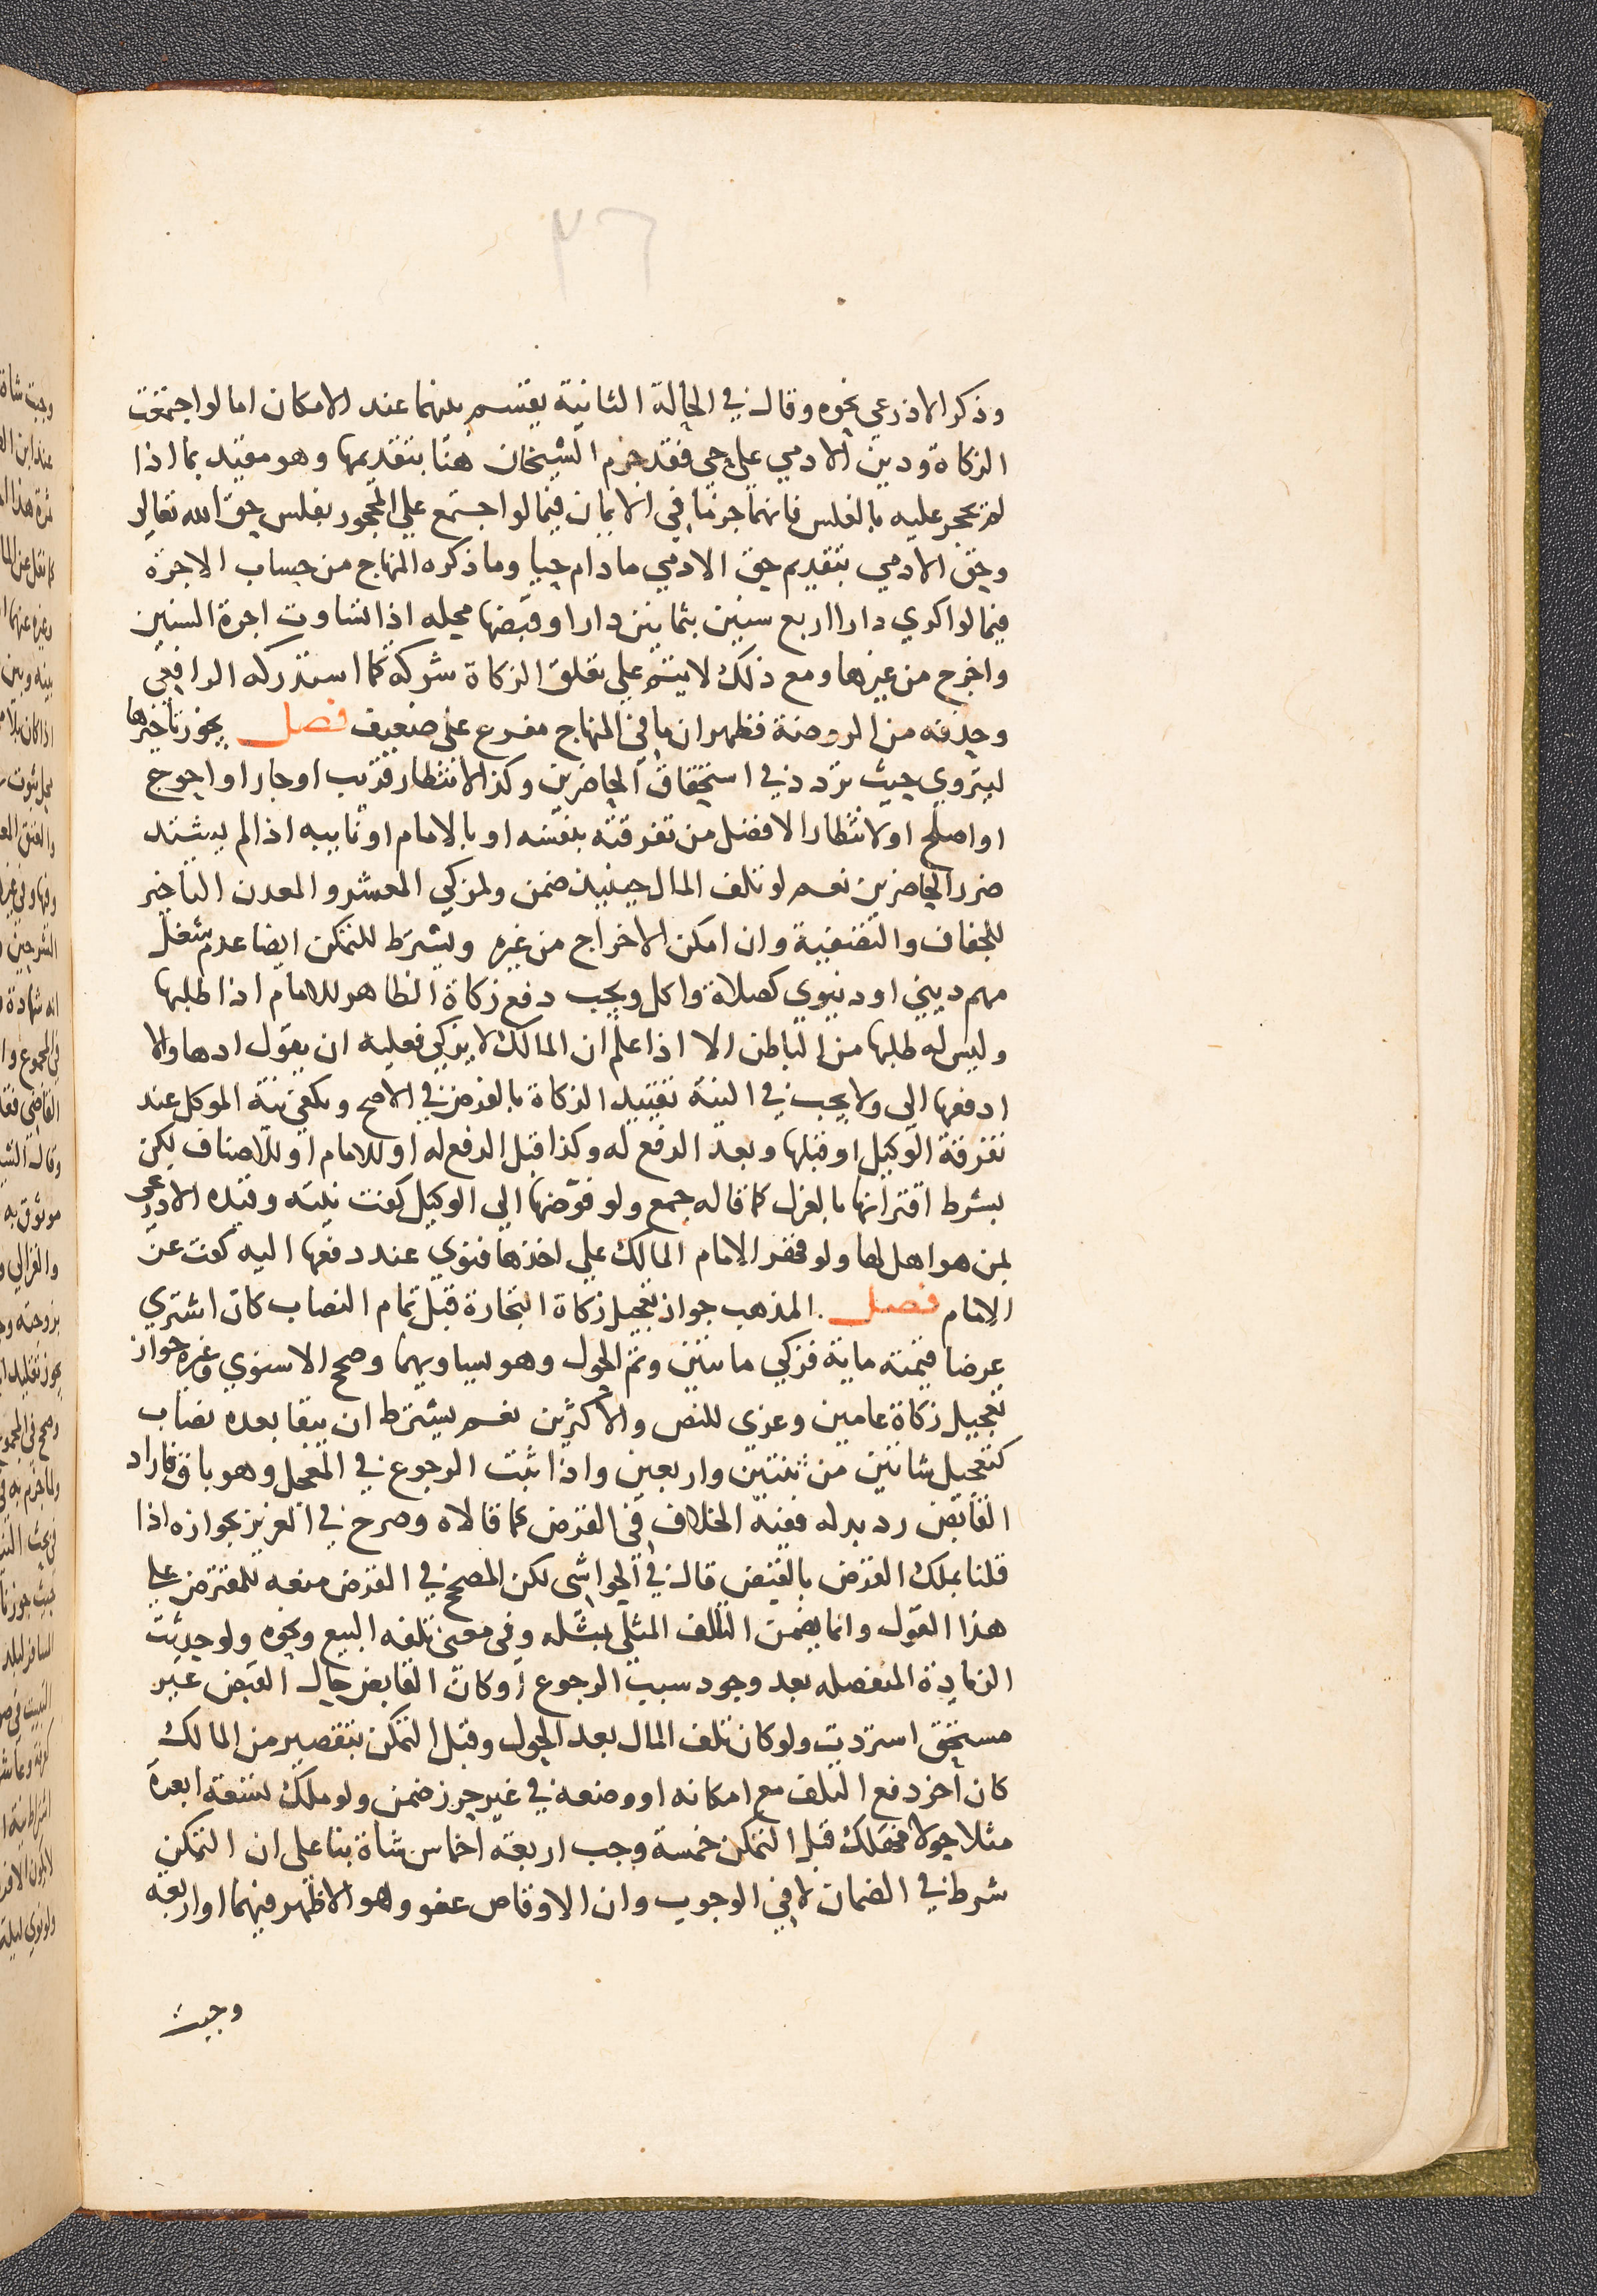 ٣٦
وذكر الاذرعي نحوه وقال في الحالة الثانية يقسم بينهما عند الامكان اما لو اجتمعت
الزكاة ودين الادمي علي حي فقد جزم الشيخان هنا بتقديمها وهو مقيد بما اذا
لم يحجر عليه بالفلس فانهما جزما في الايمان فيما لو اجتمع علي المحجور بفلس حق الله تعالي
وحق الادمي بتقديم حق الادمي ما دام حيا وما ذكره المنهاج من حساب الاجرة
فيما لو اكري دارا اربع سنين بثمانين دارا وقبضها محله اذا تساوت اجرة السنين
واخرج من غيرها ومع ذلك لا يتم علي تعلق الزكاة شركة كما استدركه الرافعي
وحذفه من الروضة فظهر ان ما في المنهاج مفرع علي ضعيف فصل يجوز تأخيرها
ليتروي حيث تردد في استحقاق الحاضرين وكذا لانتظار قريب او جار او احوج
او اصلح او لانتظار الافضل من تفرقته بنفسه او بالامام او نايبه اذا لم يشتد
ضرر الحاضرين نعم لو تلف المال حينيذ ضمن ولمزكي المعشر والمعدن التأخير
للجفاف والتصفية وان امكن الاخراج من غيره ويشرط للتمكن ايضا عدم شغل
مهم ديني او دنيوي كصلاة واكل ويجب دفع زكاة الظاهر للامام اذا طلبها
وليس له طلبها من الباطن الا اذا علم ان المالك لا يزكي فعليه ان يقول ادها والا
ادفعها الي ولا يجب في النية تقييد الزكاة بالفرض في الاصح وتكفي نية الموكل عند
تفرقة الوكيل او قبلها وبعد الدفع له وكذا قبل الدفع له او للامام او للاصناف لكن
بشرط اقترانها بالعزل كما قاله جمع ولو فوضها الي الوكيل كفت نيته وقيده الاذرعي
لمن هو اهل لها ولو قهر الامام المالك علي اخذها فنوي عند دفعها اليه كفت عن
الامام فصل المذهب جواز تعجيل زكاة التجارة قبل تمام النصاب كان اشتري
عرضا قيمته ماية فزكي ماتين وتم الحول وهو يساويهما وصحح الاسنوي وغيره جواز
تعجيل زكاة عامين وعزي للنص والاكثرين نعم يشترط ان يبقا بعده نصاب
كتعجيل شاتين من ثنتين واربعين واذا ثبت الرجوع في المعجل وهو باق فاراد
القابض رد بدله ففيه الخلاف في القرض كما قالاه وصرح في العزيز بجوازه اذا
قلنا بملك القرض بالقبض قال في الحواشي لكن المصحح في القرض منعه للمقترض علي
هذا القول وانما يضمن التالف المثلي بمثله وفي معني تلفه البيع ونحوه ولو حدثت
الزيادة المنفصلة بعد وجود سبب الرجوع او كان القابض حال القبض غير
مستحق استردت ولو كان تلف المال بعد الحول وقبل التمكن بتقصير من المالك
كان اخر دفع التلف مع امكانه او وضعه في غير حرز ضمن ولو ملك تسعة ابعرة
مثلا حولا فهلك قبل التمكن خمسة وجب اربعة اخماس شاة بنا علي ان التمكن
شرط في الضمان لا في الوجوب وان الاوقاص عفو وهو الاظهر فيهما او اربعة
وجبت